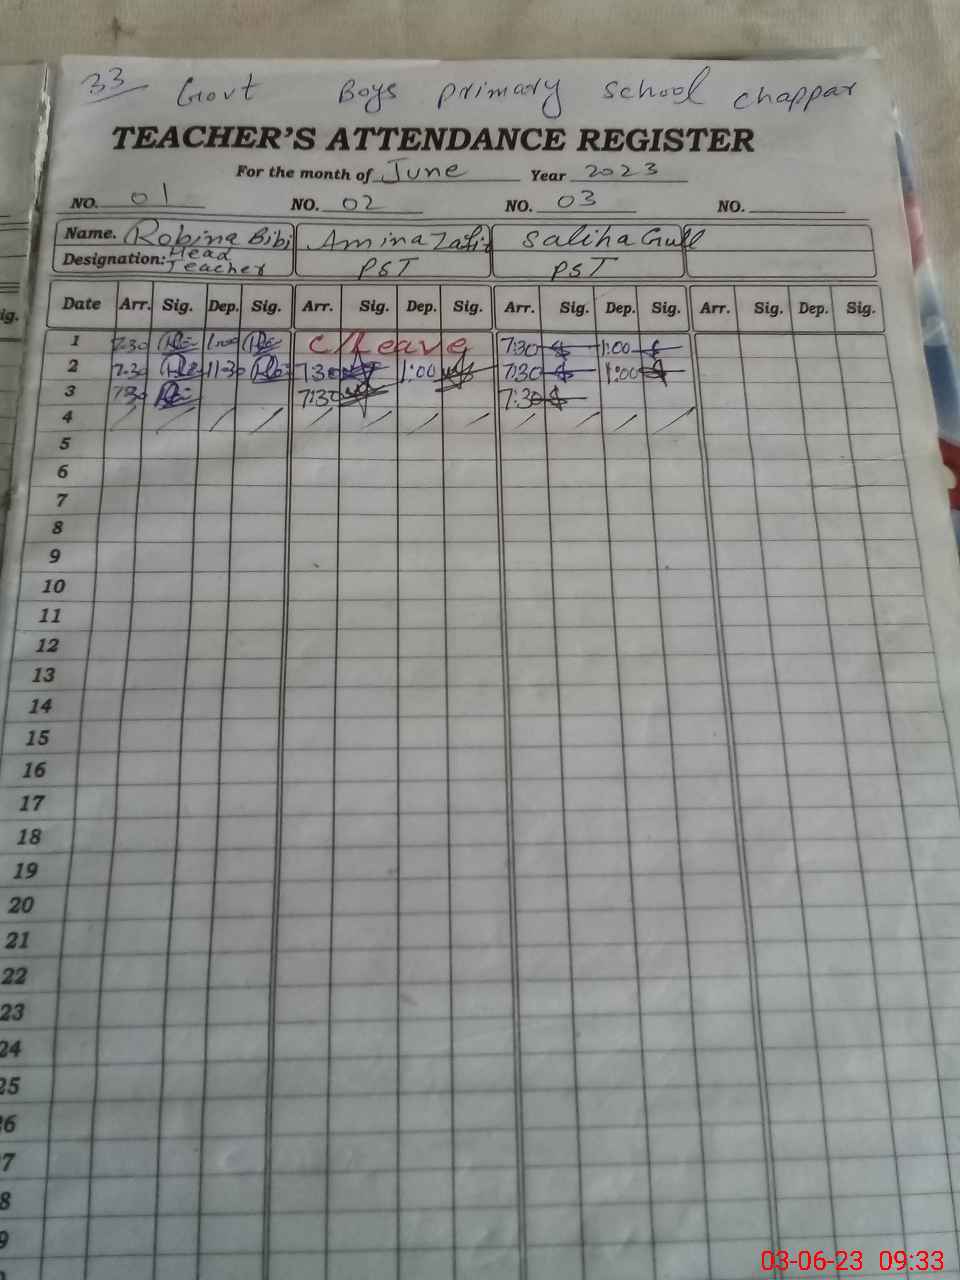 33 Govt Boys primary school chappar
TEACHER'S ATTENDANCE REGISTER
For the month of June Year 2023
NO. 01 NO. 02 NO. 03 NO.
Name. Robina Bibi Amina Zahid Saliha Gull
Designation: Head Teacher PST PST
ig. Date Arr. Sig. Dep. Sig. Arr. Sig. Dep. Sig. Arr. Sig. Dep. Sig. Arr. Sig. Dep. Sig.
1 7.30 1:00 C/Leave 7:30 1:00
2 7.30 11-30 7:30 1:00 7:30 1:00
3 7:30 7:30 7:30
4 / / / / / / / / / / / /
5
6
7
8
9
10
11
12
13
14
15
16
17
18
19
20
21
22
23
24
25
26
7
8
9
03-06-23 09:33